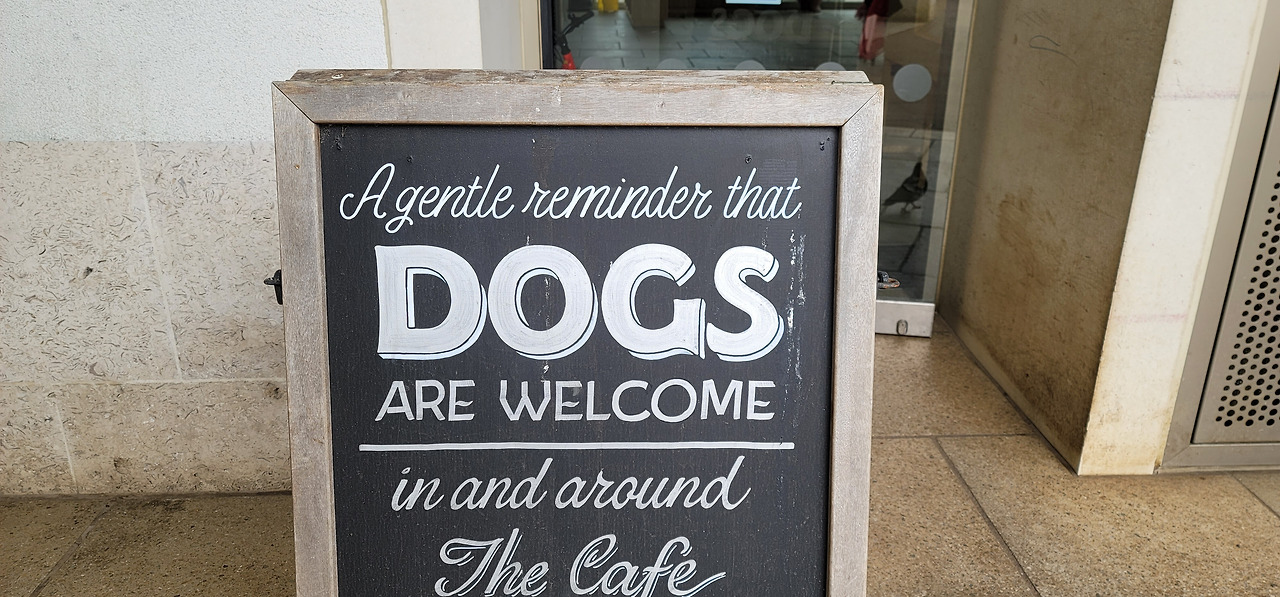 A gentle reminder that
DOGS
ARE WELCOME
in and around
The Cafe